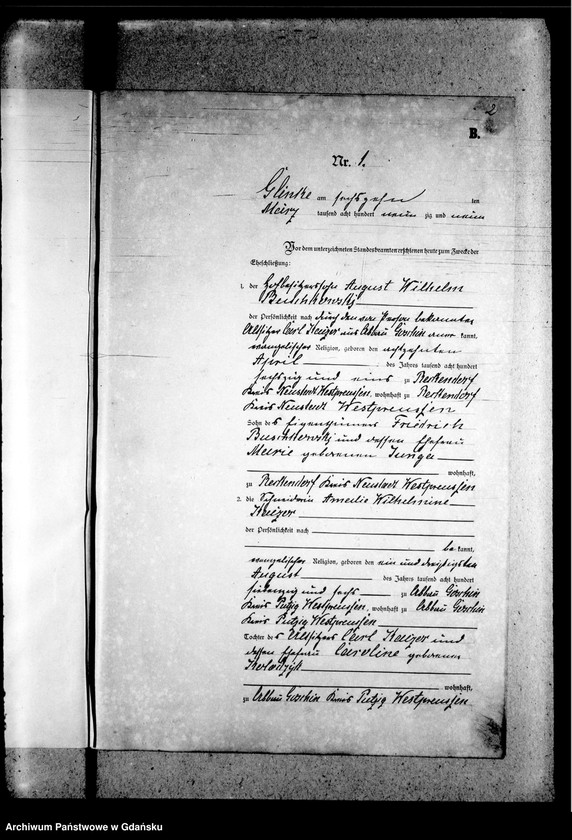 2
B.
Nr. 1.
Glinke am sechszehn ten
März tausend acht hundert neun zig und neun
Vor dem unterzeichneten Standesbeamten erschienen heute zum Zwecke der
Eheschließung:
1. der Hofbesitzersohn August Wilhelm
Buschkowsky
der Persönlichkeit nach durch den von Person bekannten
Altsitzer Carl Kaizer aus Abbau Goschin aner kannt,
evangelischer Religion, geboren den achtzehnten
April des Jahres tausend acht hundert
sechszig und eins zu Rekendorf
Kreis Neustadt Westpreussen, wohnhaft zu Rekendorf
Kreis Neustadt Westpreussen
Sohn des Eigenthümers Friedrich
Buschkowsky und dessen Ehefrau
Marie geborenen Junga
wohnhaft,
zu Rekendorf Kreis Neustadt Westpreussen
2. die Schneiderin Amalie Wilhelmine
Kaizer
der Persönlichkeit nach
be kannt,
evangelischer Religion, geboren den ein und dreißigsten
August des Jahres tausend acht hundert
siebenzig und sechs zu Abbau Goschin
Kreis Putzig Westpreussen, wohnhaft zu Abbau Goschin
Kreis Putzig Westpreussen
Tochter des Altsitzers Carl Kaizer und
dessen Ehefrau Caroline geborenen
wohnhaft,
zu Abbau Goschin Kreis Putzig Westpreussen
Archiwum Państwowe w Gdańsku